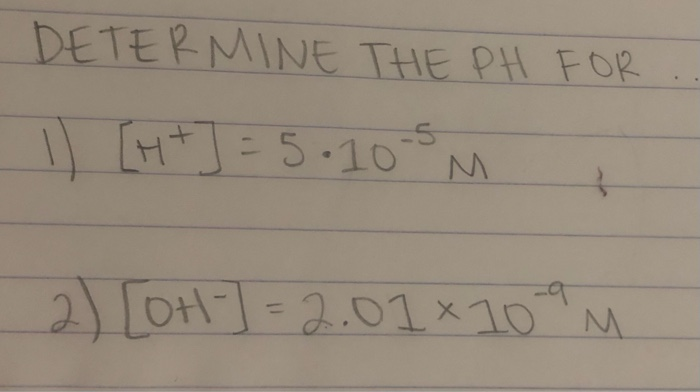 DETERMINE THE PH FOR ..
1) [H⁺] = 5·10⁻⁵ M
2) [OH⁻] = 2.01 × 10⁻⁹ M